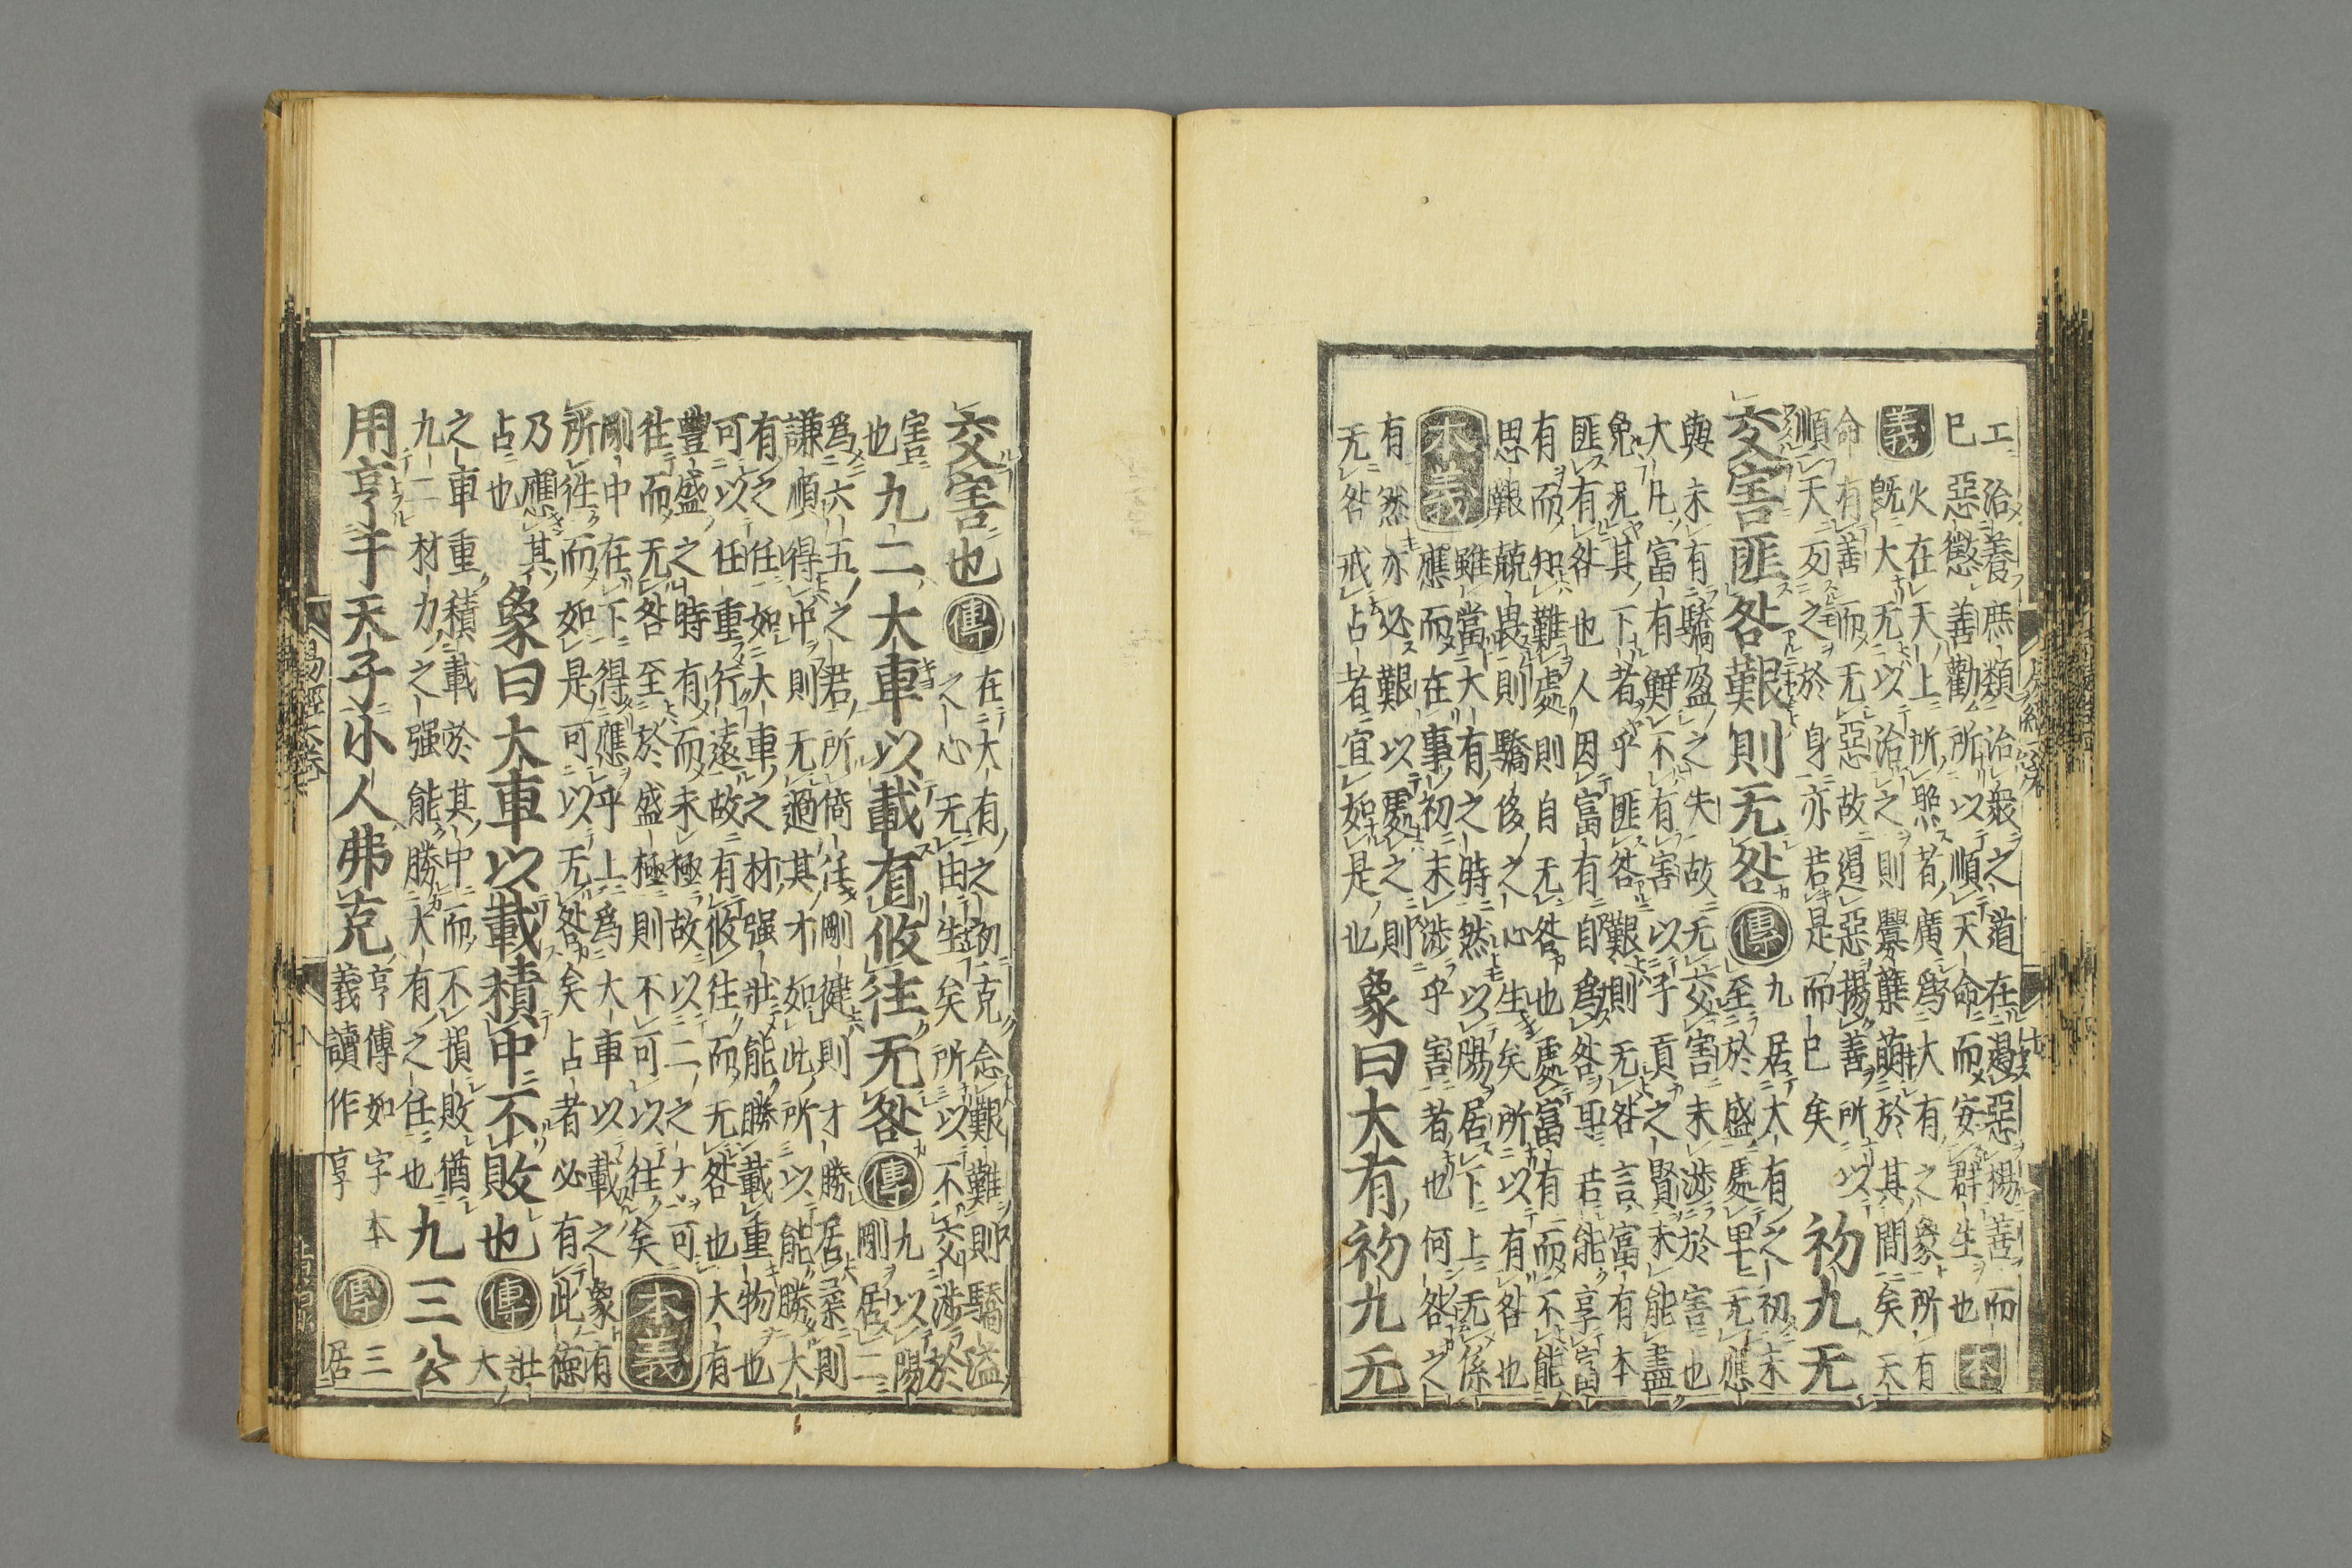 工治養庶類治衆之道在遏惡揚善而
巳惡懲善勸所以順天命而安群生也本
義火在天上所照者廣爲大有之象所有
既大无以治之則釁蘖萌於其間矣天
命有善而无惡故遏惡揚善所以
順天反之於身亦若是而巳矣
初九无
交害匪咎艱則无咎傳
九居大有之初未
至於盛處卑无應
與未有驕盈之失故无交害未涉於害也
大凡富有鮮不有害以子貢之賢未能盡
免況其下者乎匪咎艱則无咎言富有本
匪有咎也人因富有自爲咎耳若能享富
有而知難處則自无咎也處富有而不能
思艱兢畏則驕侈之心生矣所以有咎也
本義
雖當大有之時然以陽居下上无係
應而在事初未涉乎害者也何咎之
有然亦必艱以處之則
无咎戒占者宜如是也
象曰大有初九无
交害也傳
在大有之初克念艱難則驕溢
之心无由生矣所以不交涉於
害
也
九二大車以載有攸往无咎傳
九以陽
剛居二
爲六五之君所倚任剛健則才勝居柔則
謙順得中則无過其才如此所以能勝大
有之任如大車之材强壯能勝載重物也
可以任重行遠故有攸往而无咎也大有
豐盛之時有而未極故以二之才可
往而无咎至於盛極則不可以往矣
本義
剛中在下得應乎上爲大車以載之象有
所往而如是可以无咎矣占者必有此德
乃應其
占也
象曰大車以載積中不敗也傳
壯
大
之車重積載於其中而不損敗猶
九二材力之强能勝大有之任也
九三公
用亨于天子小人弗克
亨傳如字本
義讀作享
傳
三
居